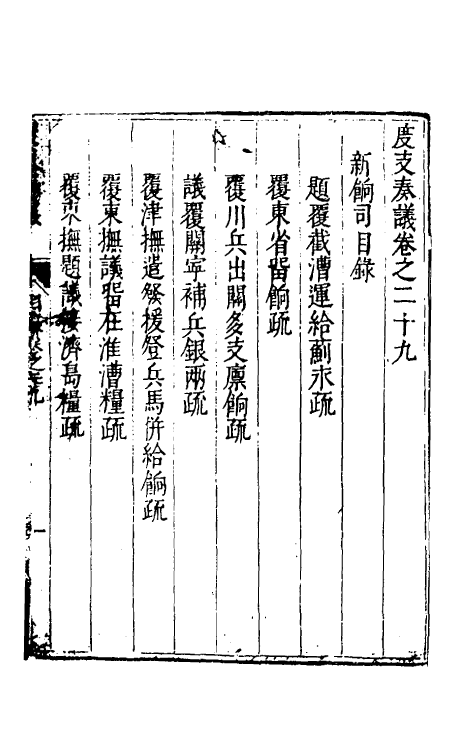 度支奏議卷之二十九
新餉司目錄
題覆截漕運給薊永疏
覆東省畱餉疏
覆川兵出關多支廪餉疏
議覆關寧補兵銀兩疏
覆津撫遣發援登兵馬併給餉疏
覆東撫議畱在淮漕糧疏
覆東撫題議接濟島糧疏